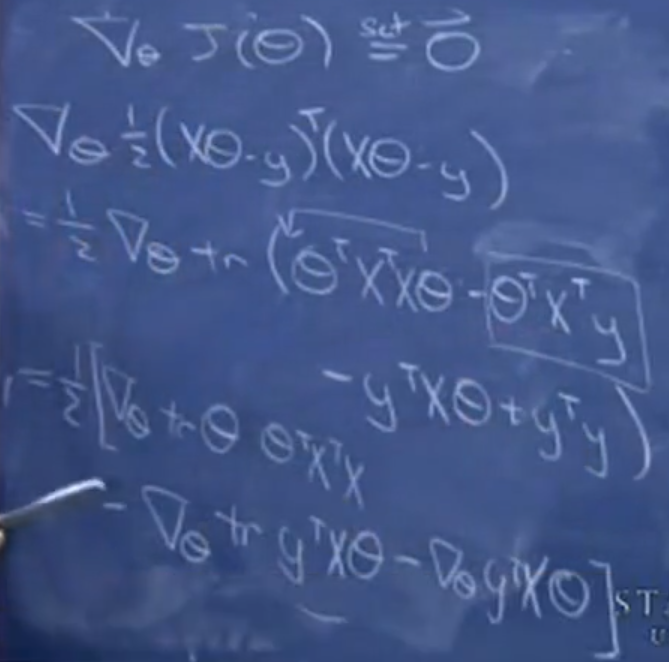 ∇_θ J(θ) set= 0⃗
∇_θ ½(Xθ-y)ᵀ(Xθ-y)
= ½ ∇_θ tr (θᵀXᵀXθ - θᵀXᵀy
- yᵀXθ + yᵀy)
= ½[∇_θ tr θ θᵀXᵀX
- ∇_θ tr yᵀXθ - ∇_θ yᵀXθ]
ST
U